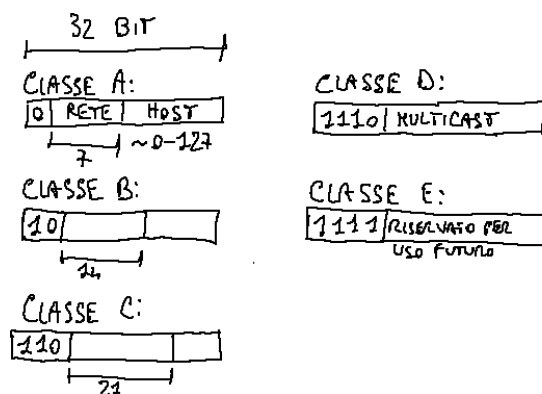 32 BIT
CLASSE A:
0 RETE HOST
7 ~0-127
CLASSE B:
10
14
CLASSE C:
110
21
CLASSE D:
1110 MULTICAST
CLASSE E:
1111 RISERVATO PER
USO FUTURO